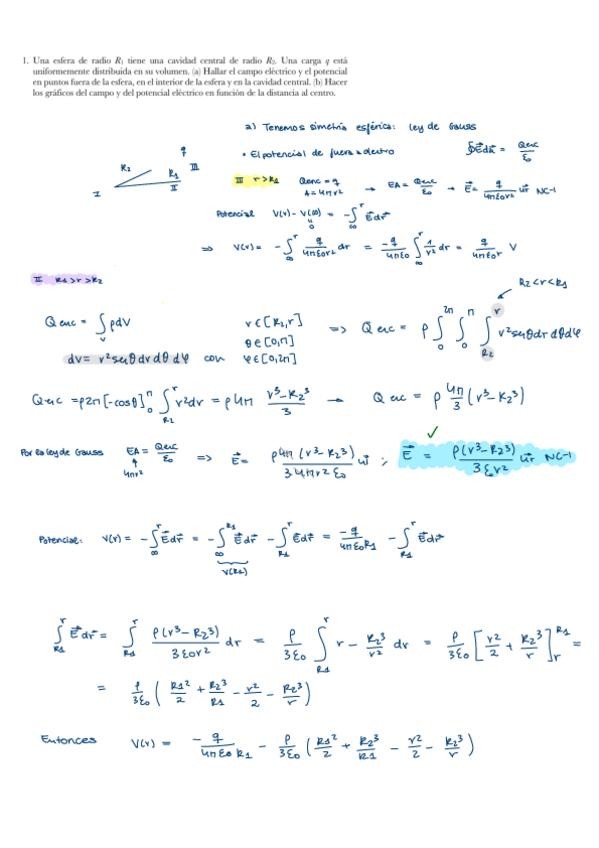 1. Una esfera de radio R₁ tiene una cavidad central de radio R₂. Una carga q está
uniformemente distribuida en su volumen. (a) Hallar el campo eléctrico y el potencial
en puntos fuera de la esfera, en el interior de la esfera y en la cavidad central. (b) Hacer
los gráficos del campo y del potencial eléctrico en función de la distancia al centro.
a) Tenemos simetría esférica: ley de Gauss
• El potencial de fuera a dentro ∮E⃗dA⃗ = Qenc/ε₀
q
R₂ R₁ III
I II
III r>R₁ Qenc = q A = 4πr² → EA = Qenc/ε₀ → E⃗ = q/4πε₀r² u⃗r NC-1
Potencial V(r) - V(∞) = -∫_∞^r E⃗dr⃗
0
⇒ V(r) = -∫_∞^r q/4πε₀r² dr = -q/4πε₀ ∫_∞^r 1/r² dr = q/4πε₀r V
II R₁>r>R₂
R₂<r<R₁
Qenc = ∫_V ρdV r∈[R₂,r] ⇒ Qenc = ρ ∫_0^2π ∫_0^π ∫_R₂^r r²senθdr dθdφ
θ∈[0,π]
dv = r²senθdrdθdφ con φ∈[0,2π]
Qenc = ρ2π[-cosθ]_0^π ∫_R₂^r r²dr = ρ4π r³-R₂³/3 → Qenc = ρ 4π/3 (r³-R₂³)
✓
Por la ley de Gauss EA = Qenc/ε₀ ⇒ E⃗ = ρ4π(r³-R₂³)/34πr²ε₀ u⃗r ; E⃗ = ρ(r³-R₂³)/3ε₀r² u⃗r NC-1
4πr²
Potencial: V(r) = -∫_∞^r E⃗dr⃗ = -∫_∞^R₁ E⃗dr⃗ - ∫_R₁^r E⃗dr⃗ = -q/4πε₀R₁ - ∫_R₁^r E⃗dr⃗
V(R₁)
∫_R₁^r E⃗dr⃗ = ∫_R₁^r ρ(r³-R₂³)/3ε₀r² dr = ρ/3ε₀ ∫_R₁^r r - R₂³/r² dr = ρ/3ε₀ [r²/2 + R₂³/r]_r^R₁ =
= ρ/3ε₀ (R₁²/2 + R₂³/R₁ - r²/2 - R₂³/r)
Entonces V(r) = -q/4πε₀R₁ - ρ/3ε₀ (R₁²/2 + R₂³/R₁ - r²/2 - R₂³/r)